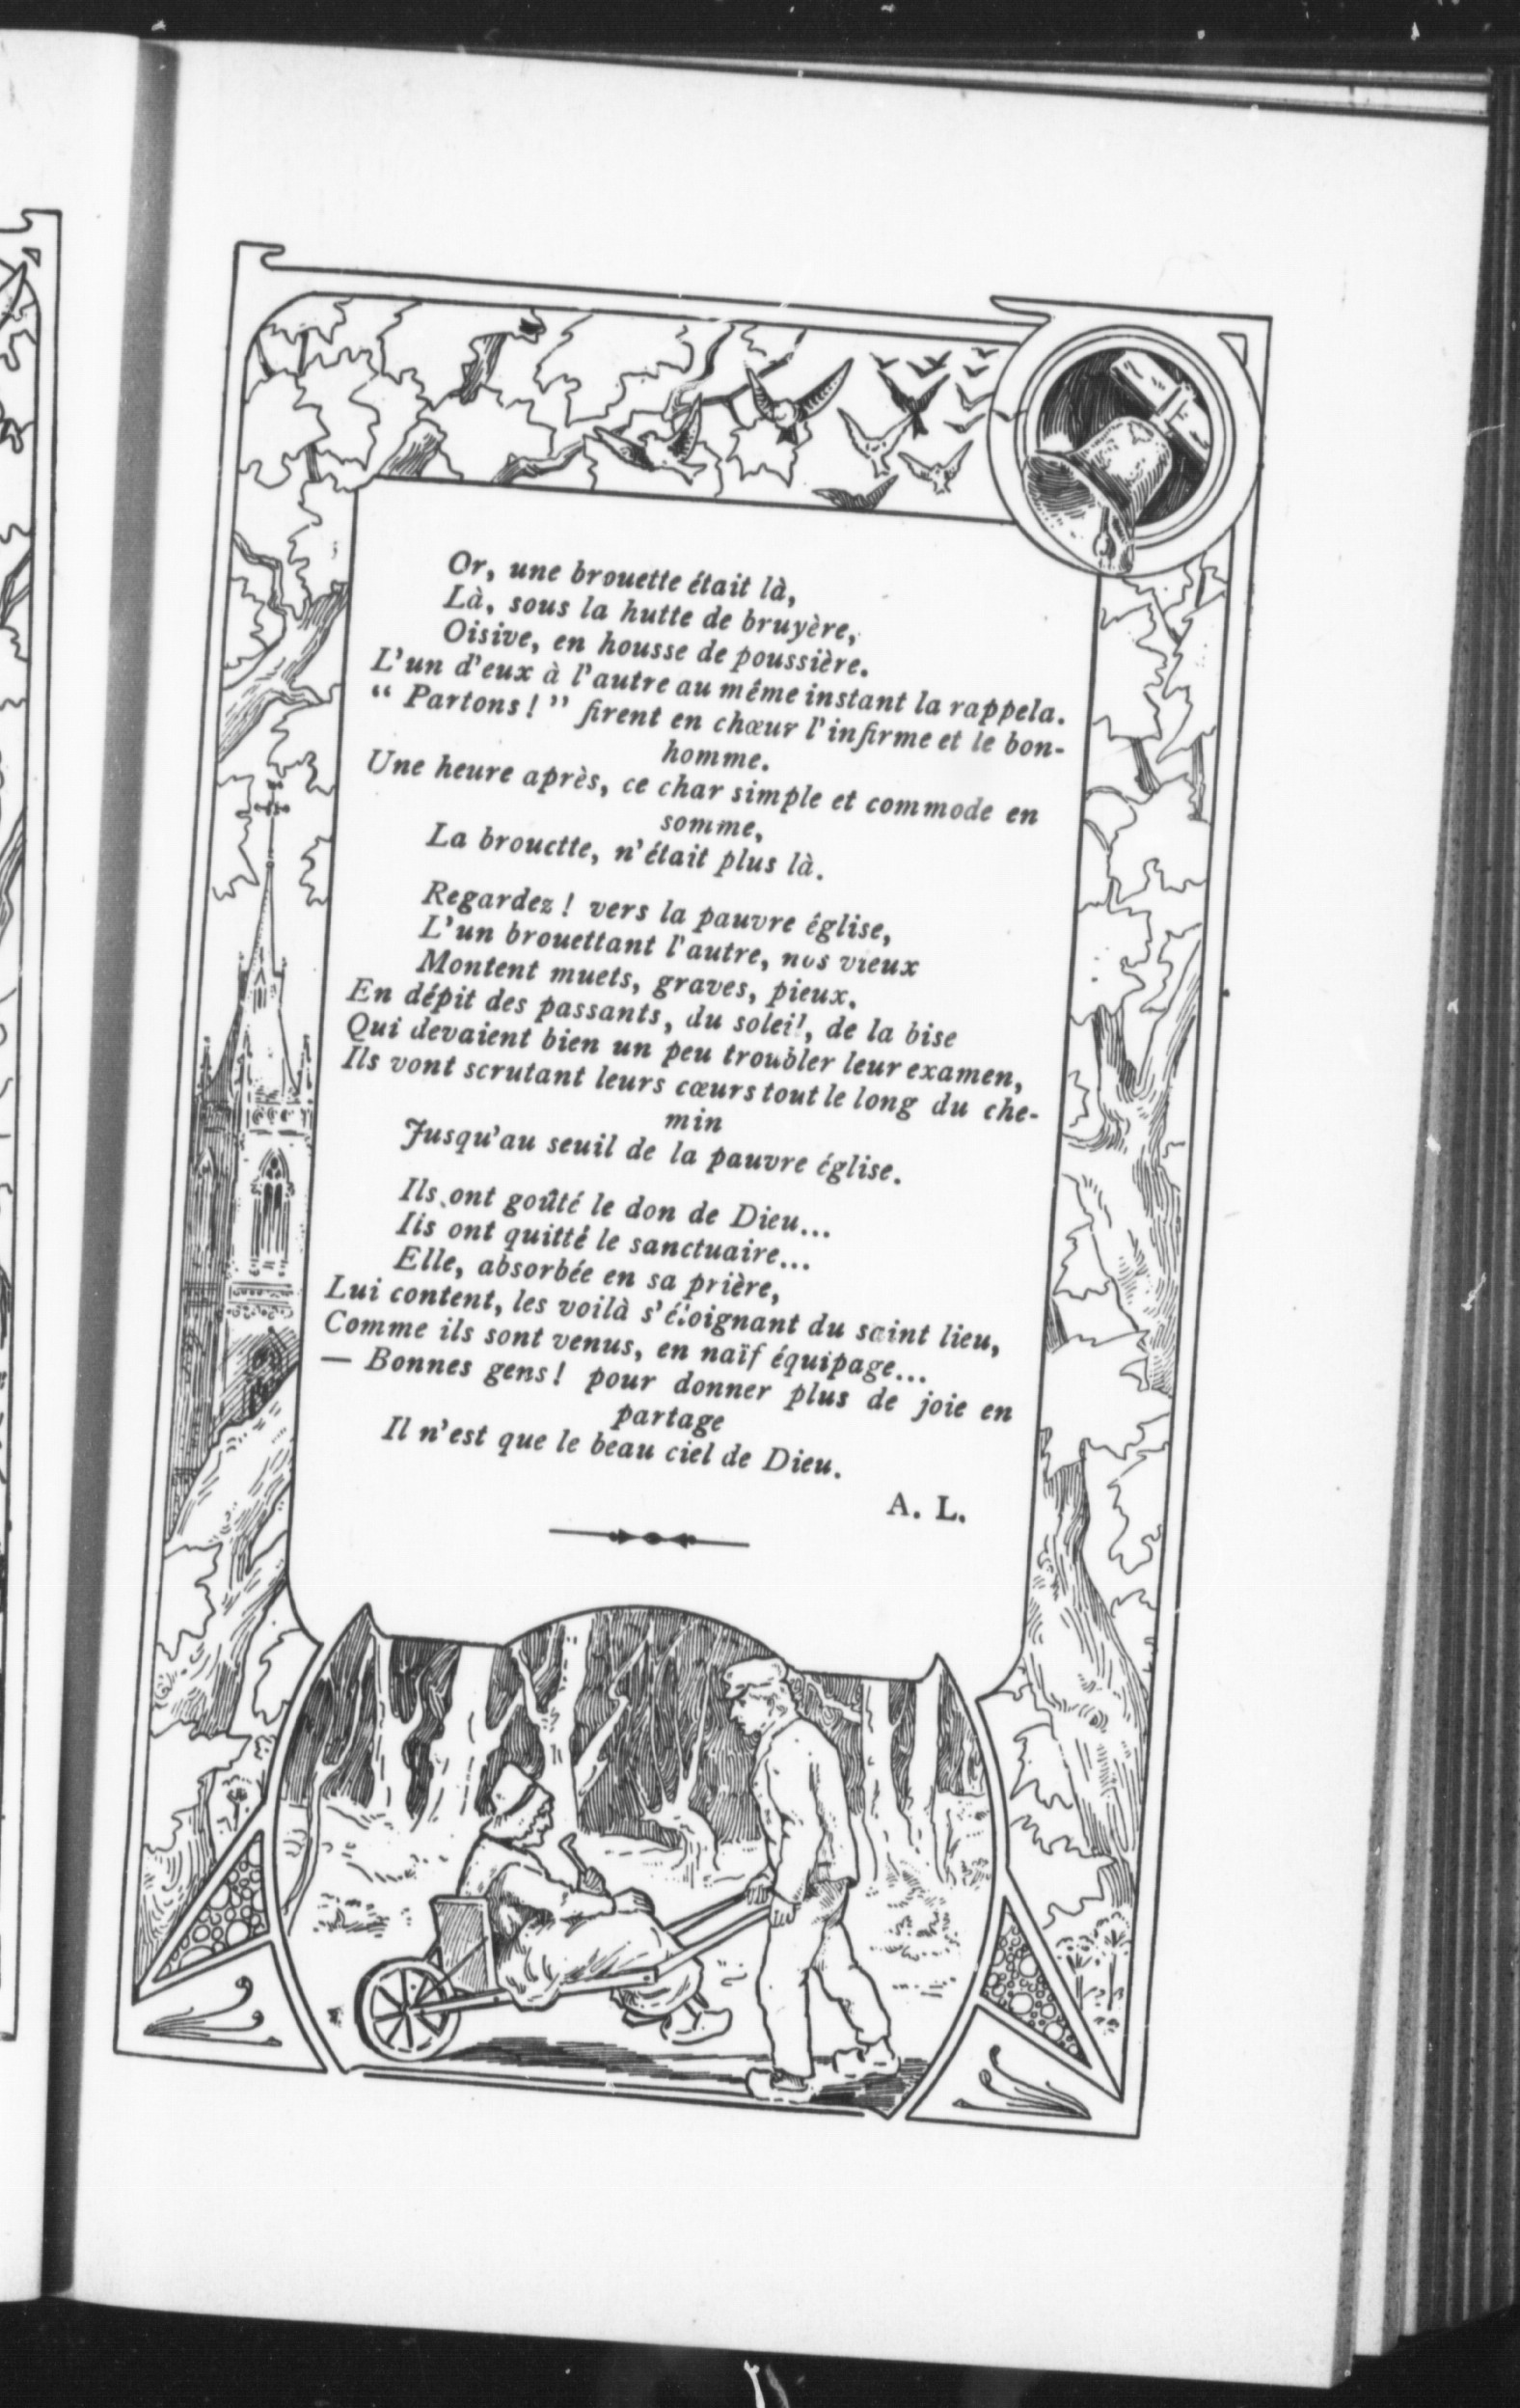 Or, une brouette était là,
Là, sous la hutte de bruyère,
Oisive, en housse de poussière.
L'un d'eux à l'autre au même instant la rappela.
“ Partons ! ” firent en chœur l'infirme et le bon-
homme.
Une heure après, ce char simple et commode en
somme,
La brouette, n'était plus là.
Regardez ! vers la pauvre église,
L'un brouettant l'autre, nos vieux
Montent muets, graves, pieux.
En dépit des passants, du soleil, de la bise
Qui devaient bien un peu troubler leur examen,
Ils vont scrutant leurs cœurs tout le long du che-
min
Jusqu'au seuil de la pauvre église.
Ils ont goûté le don de Dieu...
Ils ont quitté le sanctuaire...
Elle, absorbée en sa prière,
Lui content, les voilà s'éloignant du saint lieu,
Comme ils sont venus, en naïf équipage...
— Bonnes gens ! pour donner plus de joie en
partage
Il n'est que le beau ciel de Dieu.
A. L.